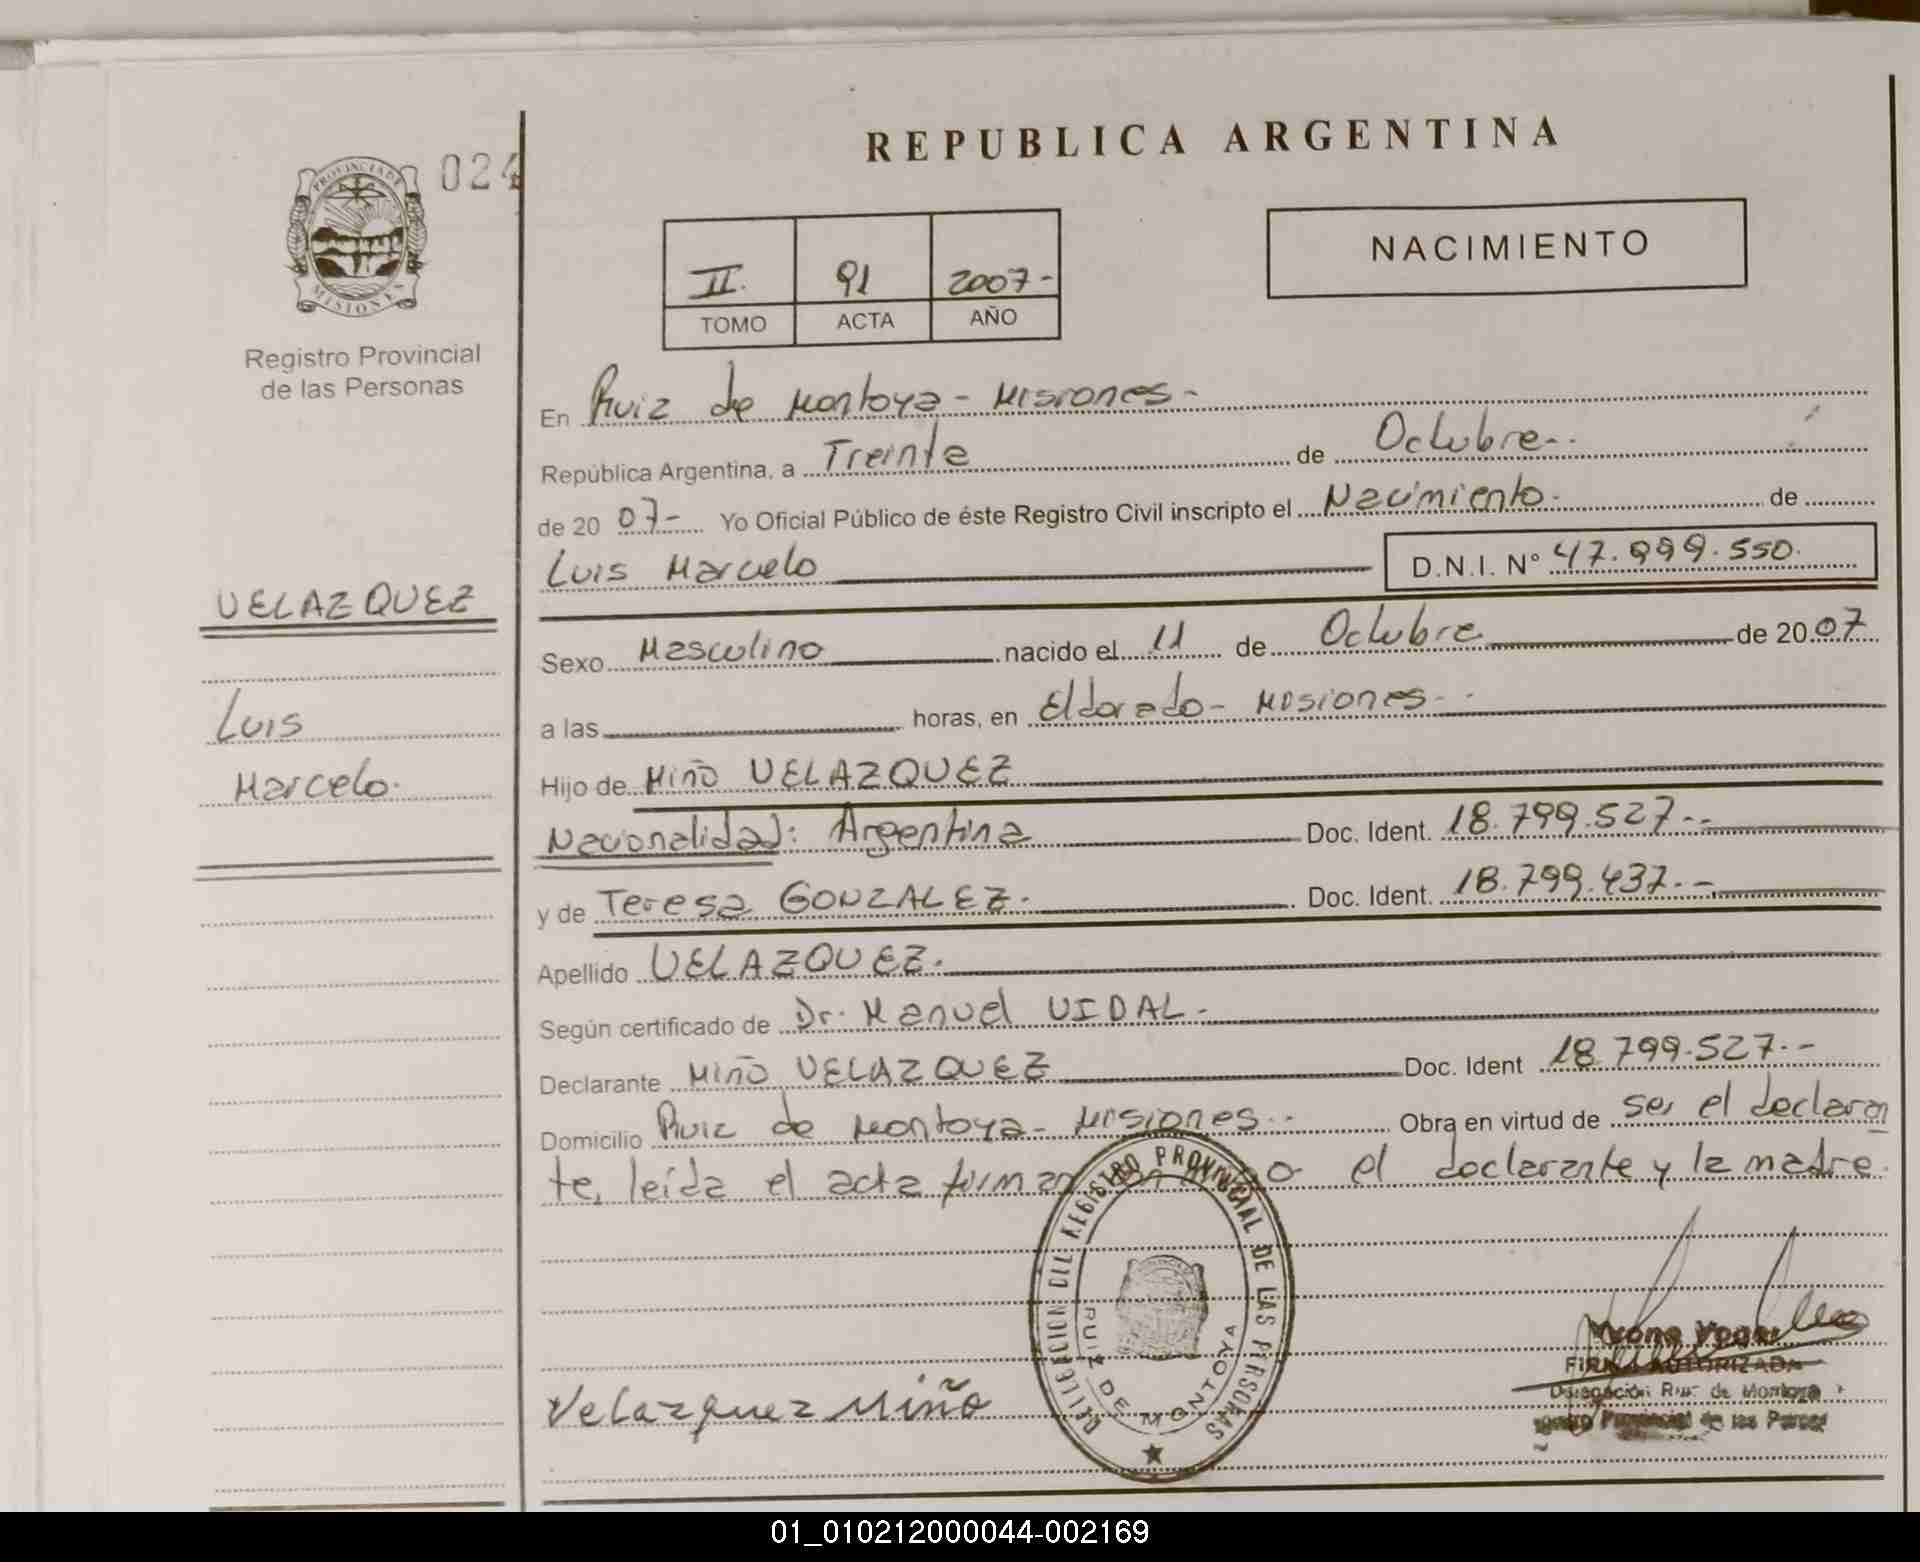 REPUBLICA ARGENTINA
PROVINCIA DE MISIONES
024
Registro Provincial
de las Personas
II. 91 2007-
TOMO ACTA AÑO
NACIMIENTO
En Ruiz de Montoya - Misiones-
República Argentina, a Treinta de Octubre.
de 20 07- Yo Oficial Público de éste Registro Civil inscripto el Nacimiento. de
Luis Marcelo D.N.I. Nº 47.999.550.
VELAZQUEZ
Luis
Marcelo.
Sexo Masculino nacido el 11 de Octubre de 20 07
a las horas, en Eldorado - Misiones-
Hijo de Miño VELAZQUEZ
Nacionalidad: Argentina Doc. Ident. 18.799.527.-
y de Teresa GONZALEZ. Doc. Ident. 18.799.437.-
Apellido VELAZQUEZ.
Según certificado de Dr. Manuel VIDAL.
Declarante Miño VELAZQUEZ Doc. Ident 18.799.527.-
Domicilio Ruiz de Montoya - Misiones.. Obra en virtud de ser el declaran
te, leída el acta firman el declarante y la madre.
DELEGACION DEL REGISTRO PROVINCIAL DE LAS PERSONAS
RUIZ DE MONTOYA
Velazquez Miño
FIRMA AUTORIZADA
Delegación Ruiz de Montoya
Provincial de las Person
01_010212000044-002169